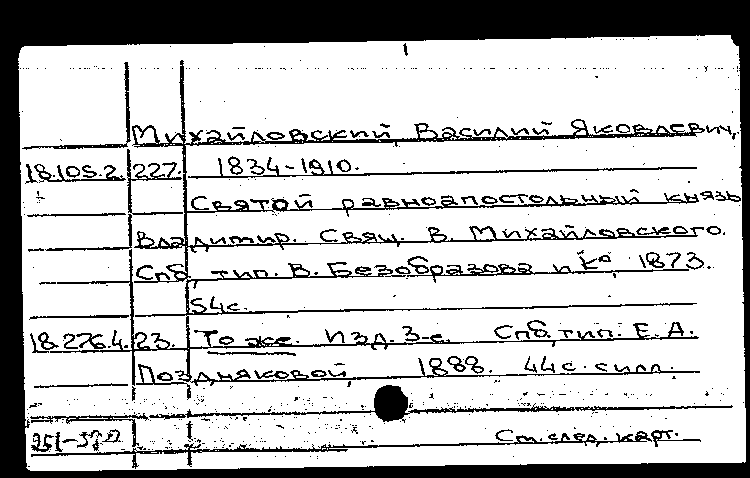 1
Михайловский, Василий Яковлевич,
18.105.2.227. 1834-1910.
Святой равноапостольный князь
Владимир. Свящ. В. Михайловского.
Спб, тип. В. Безобразова и К°, 1873.
54с.
18.276.4.23. То же. Изд. 3-е. Спб, тип. Е. А.
Поздняковой, 1888. 44с. с илл.
См. след. карт.